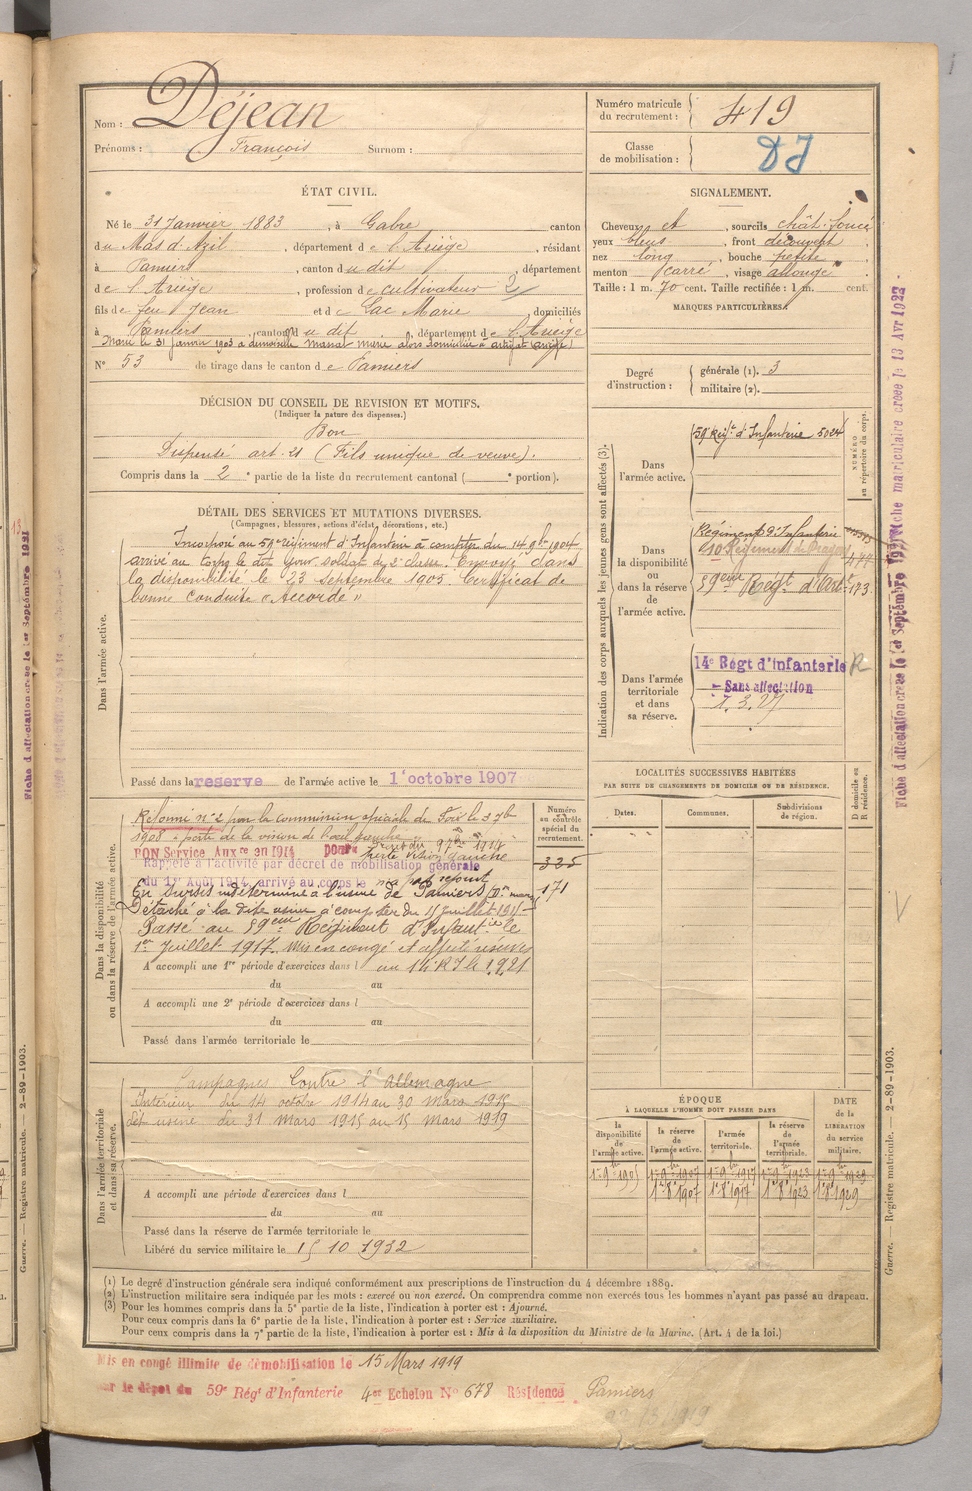 Nom : Déjean
Prénoms : François Surnom :
Numéro matricule du recrutement : 419
Classe de mobilisation :
ÉTAT CIVIL.
Né le 31 Janvier 1883, à Gabre, canton
du Mas d'Azil, département de l'Ariège, résidant
à Pamiers, canton du dit, département
de l'Ariège, profession de cultivateur 2
fils de feu Jean et de Lac Marie domiciliés
à Pamiers, canton du dit, département de l'Ariège
Marié le 31 Janvier 1903 à demoiselle Manat Marie alors domiciliée à Artigat (Ariège)
N° 53 de tirage dans le canton de Pamiers
SIGNALEMENT.
Cheveux et, sourcils chât-foncé
yeux bleus, front découvert
nez long, bouche petite
menton carré, visage allongé
Taille : 1 m. 70 cent. Taille rectifiée : 1 m. cent.
MARQUES PARTICULIÈRES
Degré d'instruction : générale (1). 3
militaire (2).
DÉCISION DU CONSEIL DE REVISION ET MOTIFS.
(Indiquer la nature des dispenses.)
Bon
Dispensé art. 21 (Fils unique de veuve).
Compris dans la 2e partie de la liste du recrutement cantonal ( e portion).
DÉTAIL DES SERVICES ET MUTATIONS DIVERSES.
(Campagnes, blessures, actions d'éclat, décorations, etc.)
Dans l'armée active.
Incorporé au 59e régiment d'Infanterie à compter du 14 9bre 1904
arrivé au corps le dit jour, soldat de 2e classe. Envoyé dans
la disponibilité le 23 Septembre 1905. Certificat de
bonne conduite "Accordé"
Passé dans la reserve de l'armée active le 1er octobre 1907
Indication des corps auxquels les jeunes gens sont affectés (3).
NUMÉRO au répertoire du corps.
Dans l'armée active.
59e Régt d'Infanterie 5024
Dans la disponibilité ou dans la réserve de l'armée active.
Régiment d'Infanterie
10e Régiment de Dragons 477
59eme Régt d'Inf. 173
Dans l'armée territoriale et dans sa réserve.
14e Régt d'Infanterie R
- Sans affectation
1.3.27
LOCALITÉS SUCCESSIVES HABITÉES
PAR SUITE DE CHANGEMENTS DE DOMICILE OU DE RÉSIDENCE.
Dates. Communes. Subdivisions de région. D domicile ou R résidence.
Dans la disponibilité ou dans la réserve de l'armée active.
Numéro au contrôle spécial du recrutement.
Réformé n° 2 par la commission spéciale de Foix le 3 7b
1908 - perte de la vision de l'œil gauche
BON Service Auxre en 1914 pour
perte vision gauche
325
Rappelé à l'activité par décret de mobilisation générale
du 1er Août 1914, arrivé au corps le n'a pas rejoint
En sursis indéterminé à l'usine de Pamiers
171
Détaché à la dite usine à compter du 11 Juillet 191
Passé au 59eme Régiment d'Infantie le
1er Juillet 1917. Mis en congé et affecté réserve
A accompli une 1re période d'exercices dans l au 14 R I le 1.9.21
du au
A accompli une 2e période d'exercices dans l
du au
Passé dans l'armée territoriale le
Dans l'armée territoriale et dans sa réserve.
Campagnes Contre l'Allemagne
Intérieur du 14 octobre 1914 au 30 Mars 1915
dét usine du 31 Mars 1915 au 15 Mars 1919
A accompli une période d'exercices dans l
du au
Passé dans la réserve de l'armée territoriale le
Libéré du service militaire le 15 10 1932
ÉPOQUE
À LAQUELLE L'HOMME DOIT PASSER DANS
DATE de la LIBÉRATION du service militaire.
la disponibilité de l'armée active. la réserve de l'armée active. l'armée territoriale. la réserve de l'armée territoriale.
1-9bre-1905 1-9bre-1907 1-9bre-1917 1-9bre-1923 1-9bre-1929
1er 8e 1907 1er 8e 1917 1er 8e 1923 1er 8e 1929
(1) Le degré d'instruction générale sera indiqué conformément aux prescriptions de l'instruction du 4 décembre 1889.
(2) L'instruction militaire sera indiquée par les mots : exercé ou non exercé. On comprendra comme non exercés tous les hommes n'ayant pas passé au drapeau.
(3) Pour les hommes compris dans la 5e partie de la liste, l'indication à porter est : Ajourné.
Pour ceux compris dans la 6e partie de la liste, l'indication à porter est : Service auxiliaire.
Pour ceux compris dans la 7e partie de la liste, l'indication à porter est : Mis à la disposition du Ministre de la Marine. (Art. 4 de la loi.)
Mis en congé illimité de démobilisation le 15 Mars 1919
par le dépôt du 59e Régt d'Infanterie 4er Echelon N° 678 Résidence Pamiers
Guerre. — Registre matricule. — 2-89-1903.
Guerre. — Registre matricule. — 2-89-1903.
Fiche d'affectation créée le 1er Septembre 1921
Fiche matriculaire créée le 13 Avr 1922